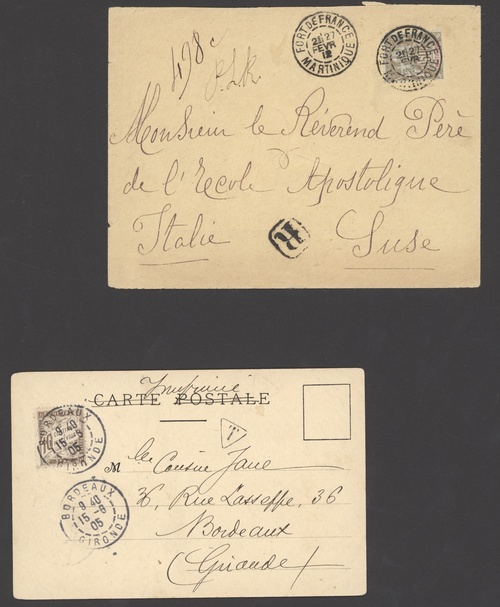 498 c
FORT DE FRANCE
2E 27
FEVR
12
MARTINIQUE
FORT DE FRANCE
2E 27
FEVR
MARTINIQUE
Monsieur le Révérend Père
de l'Ecole Apostolique
Italie Suse
R
Imprimé
CARTE POSTALE
T
BORDEAUX
9 40
15 - 8
05
GIRONDE
10
M
Cousine Jane
36, Rue Lasseppe, 36
Bordeaux
(Gironde)
BORDEAUX
9 40
15 - 8
05
GIRONDE